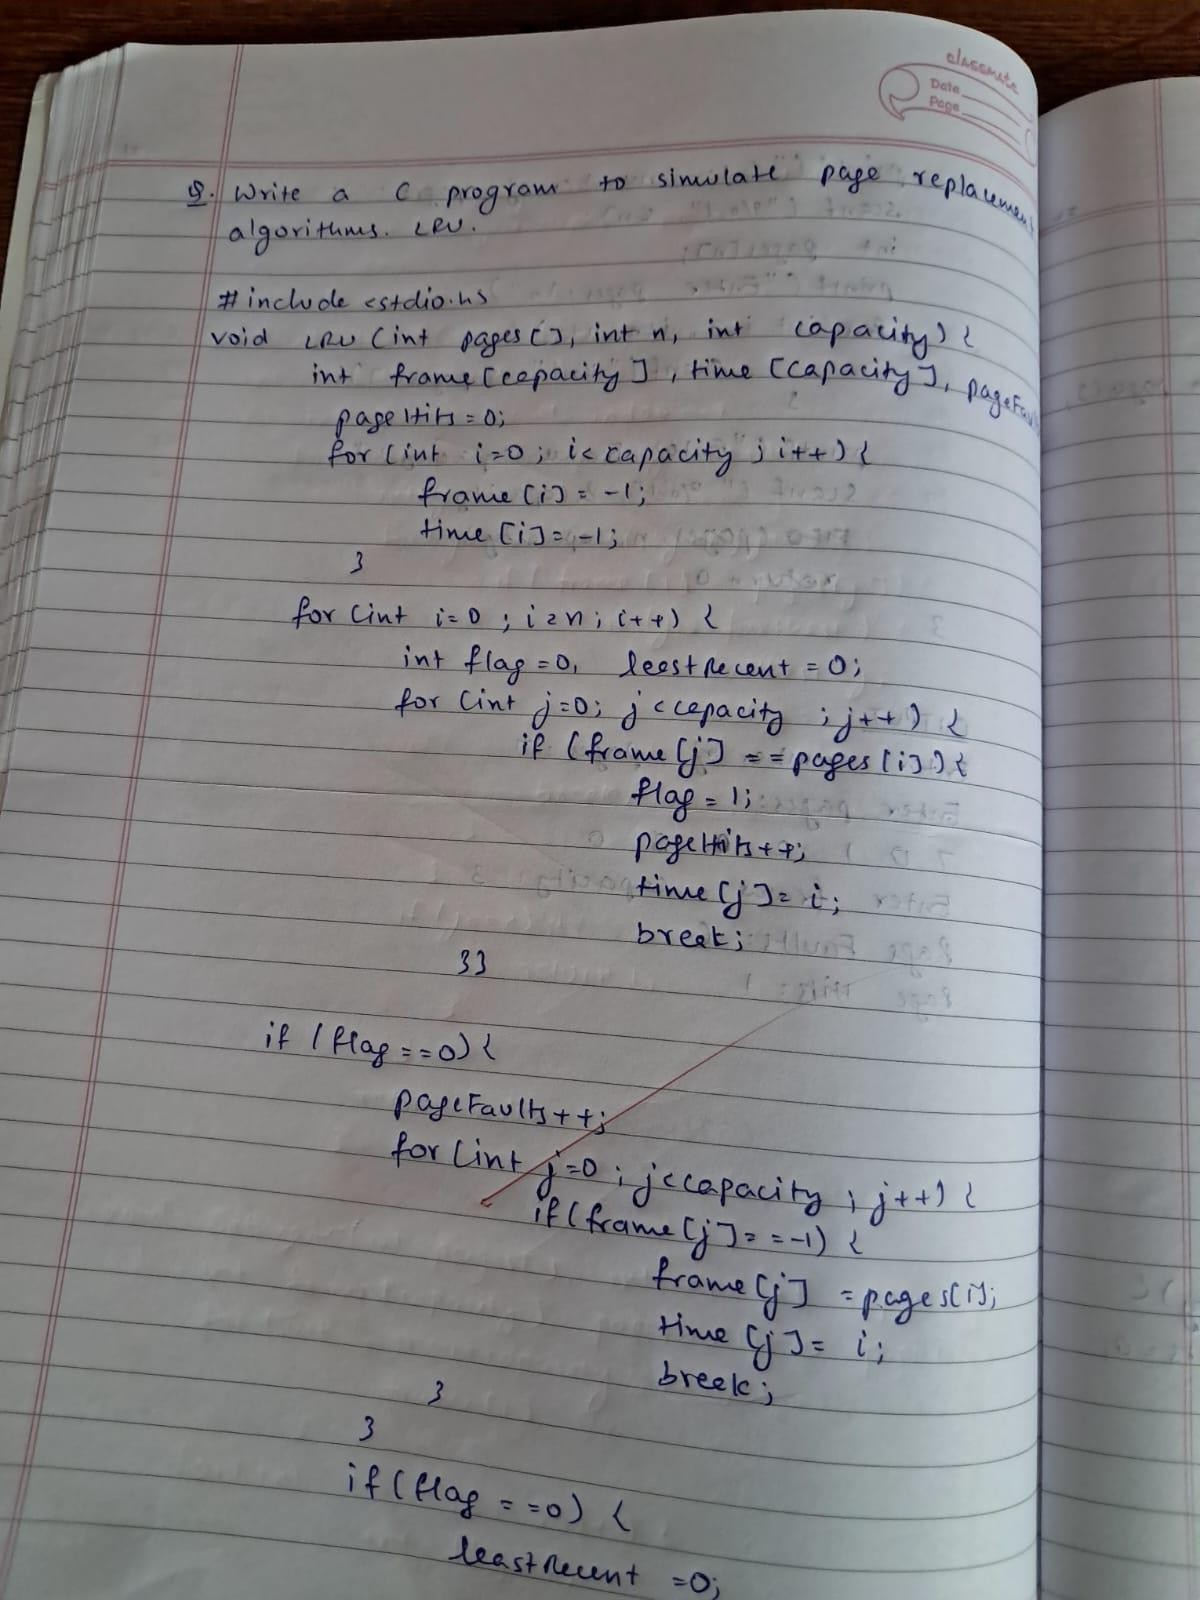 classmate
Date
Page
Q. Write a C program to simulate page replacement
algorithms. LRU.
#include <stdio.h>
void LRU (int pages[], int n, int capacity) {
int frame[capacity], time [capacity], pageFaul
pageHits = 0;
for (int i=0; i< capacity; i++) {
frame[i] = -1;
time[i] = -1;
}
for (int i=0; i<n; i++) {
int flag = 0, leastRecent = 0;
for (int j=0; j<capacity; j++) {
if (frame[j] == pages[i]) {
flag = 1;
pageHits++;
time[j] = i;
break;
}}
if (flag == 0) {
pageFaults++;
for (int j=0; j<capacity; j++) {
if (frame[j] == -1) {
frame[j] = pages[i];
time[j] = i;
break;
}
}
if (flag == 0) {
leastRecent = 0;